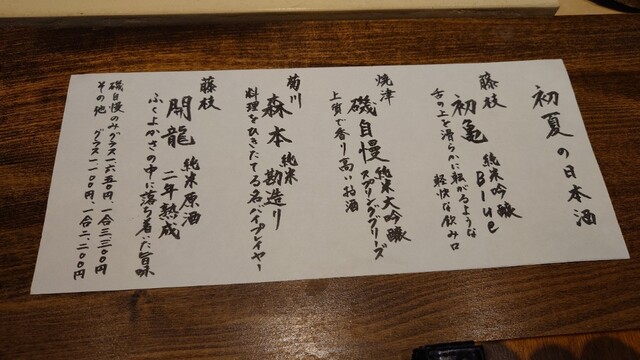 初夏の日本酒
藤枝
初亀 純米吟醸 Blue
舌の上を滑らかに転がるような
軽快な飲み口
焼津
磯自慢 純米大吟醸 スプリングブリーズ
上質で香り高いお酒
菊川
森本 純米 勘造り
料理をひきたてる名バイプレイヤー
藤枝
開龍 純米原酒 二年熟成
ふくよかさの中に落ち着いた旨味
磯自慢のみグラス一六五〇円、一合三三〇〇円
その他 グラス一一〇〇円、一合二、二〇〇円